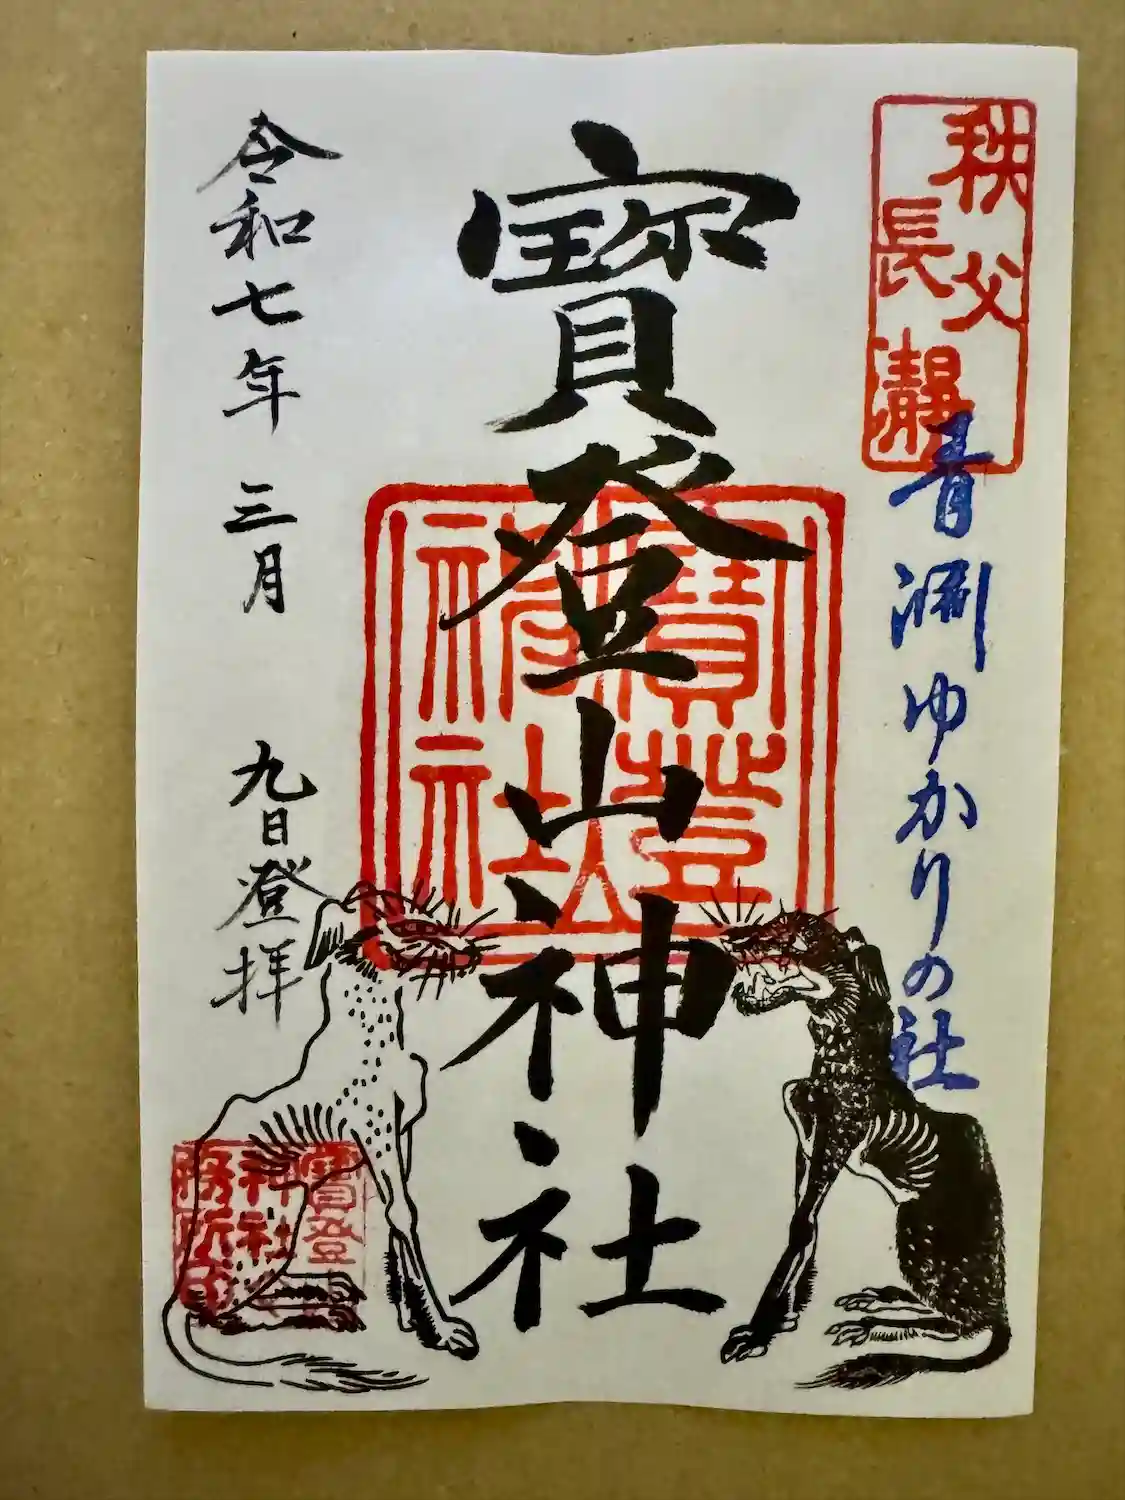 秩父
長瀞
青淵ゆかりの社
寳登山神社
寳登山
神社
令和七年 三月 九日登拝
寳登山
神社社
務所印